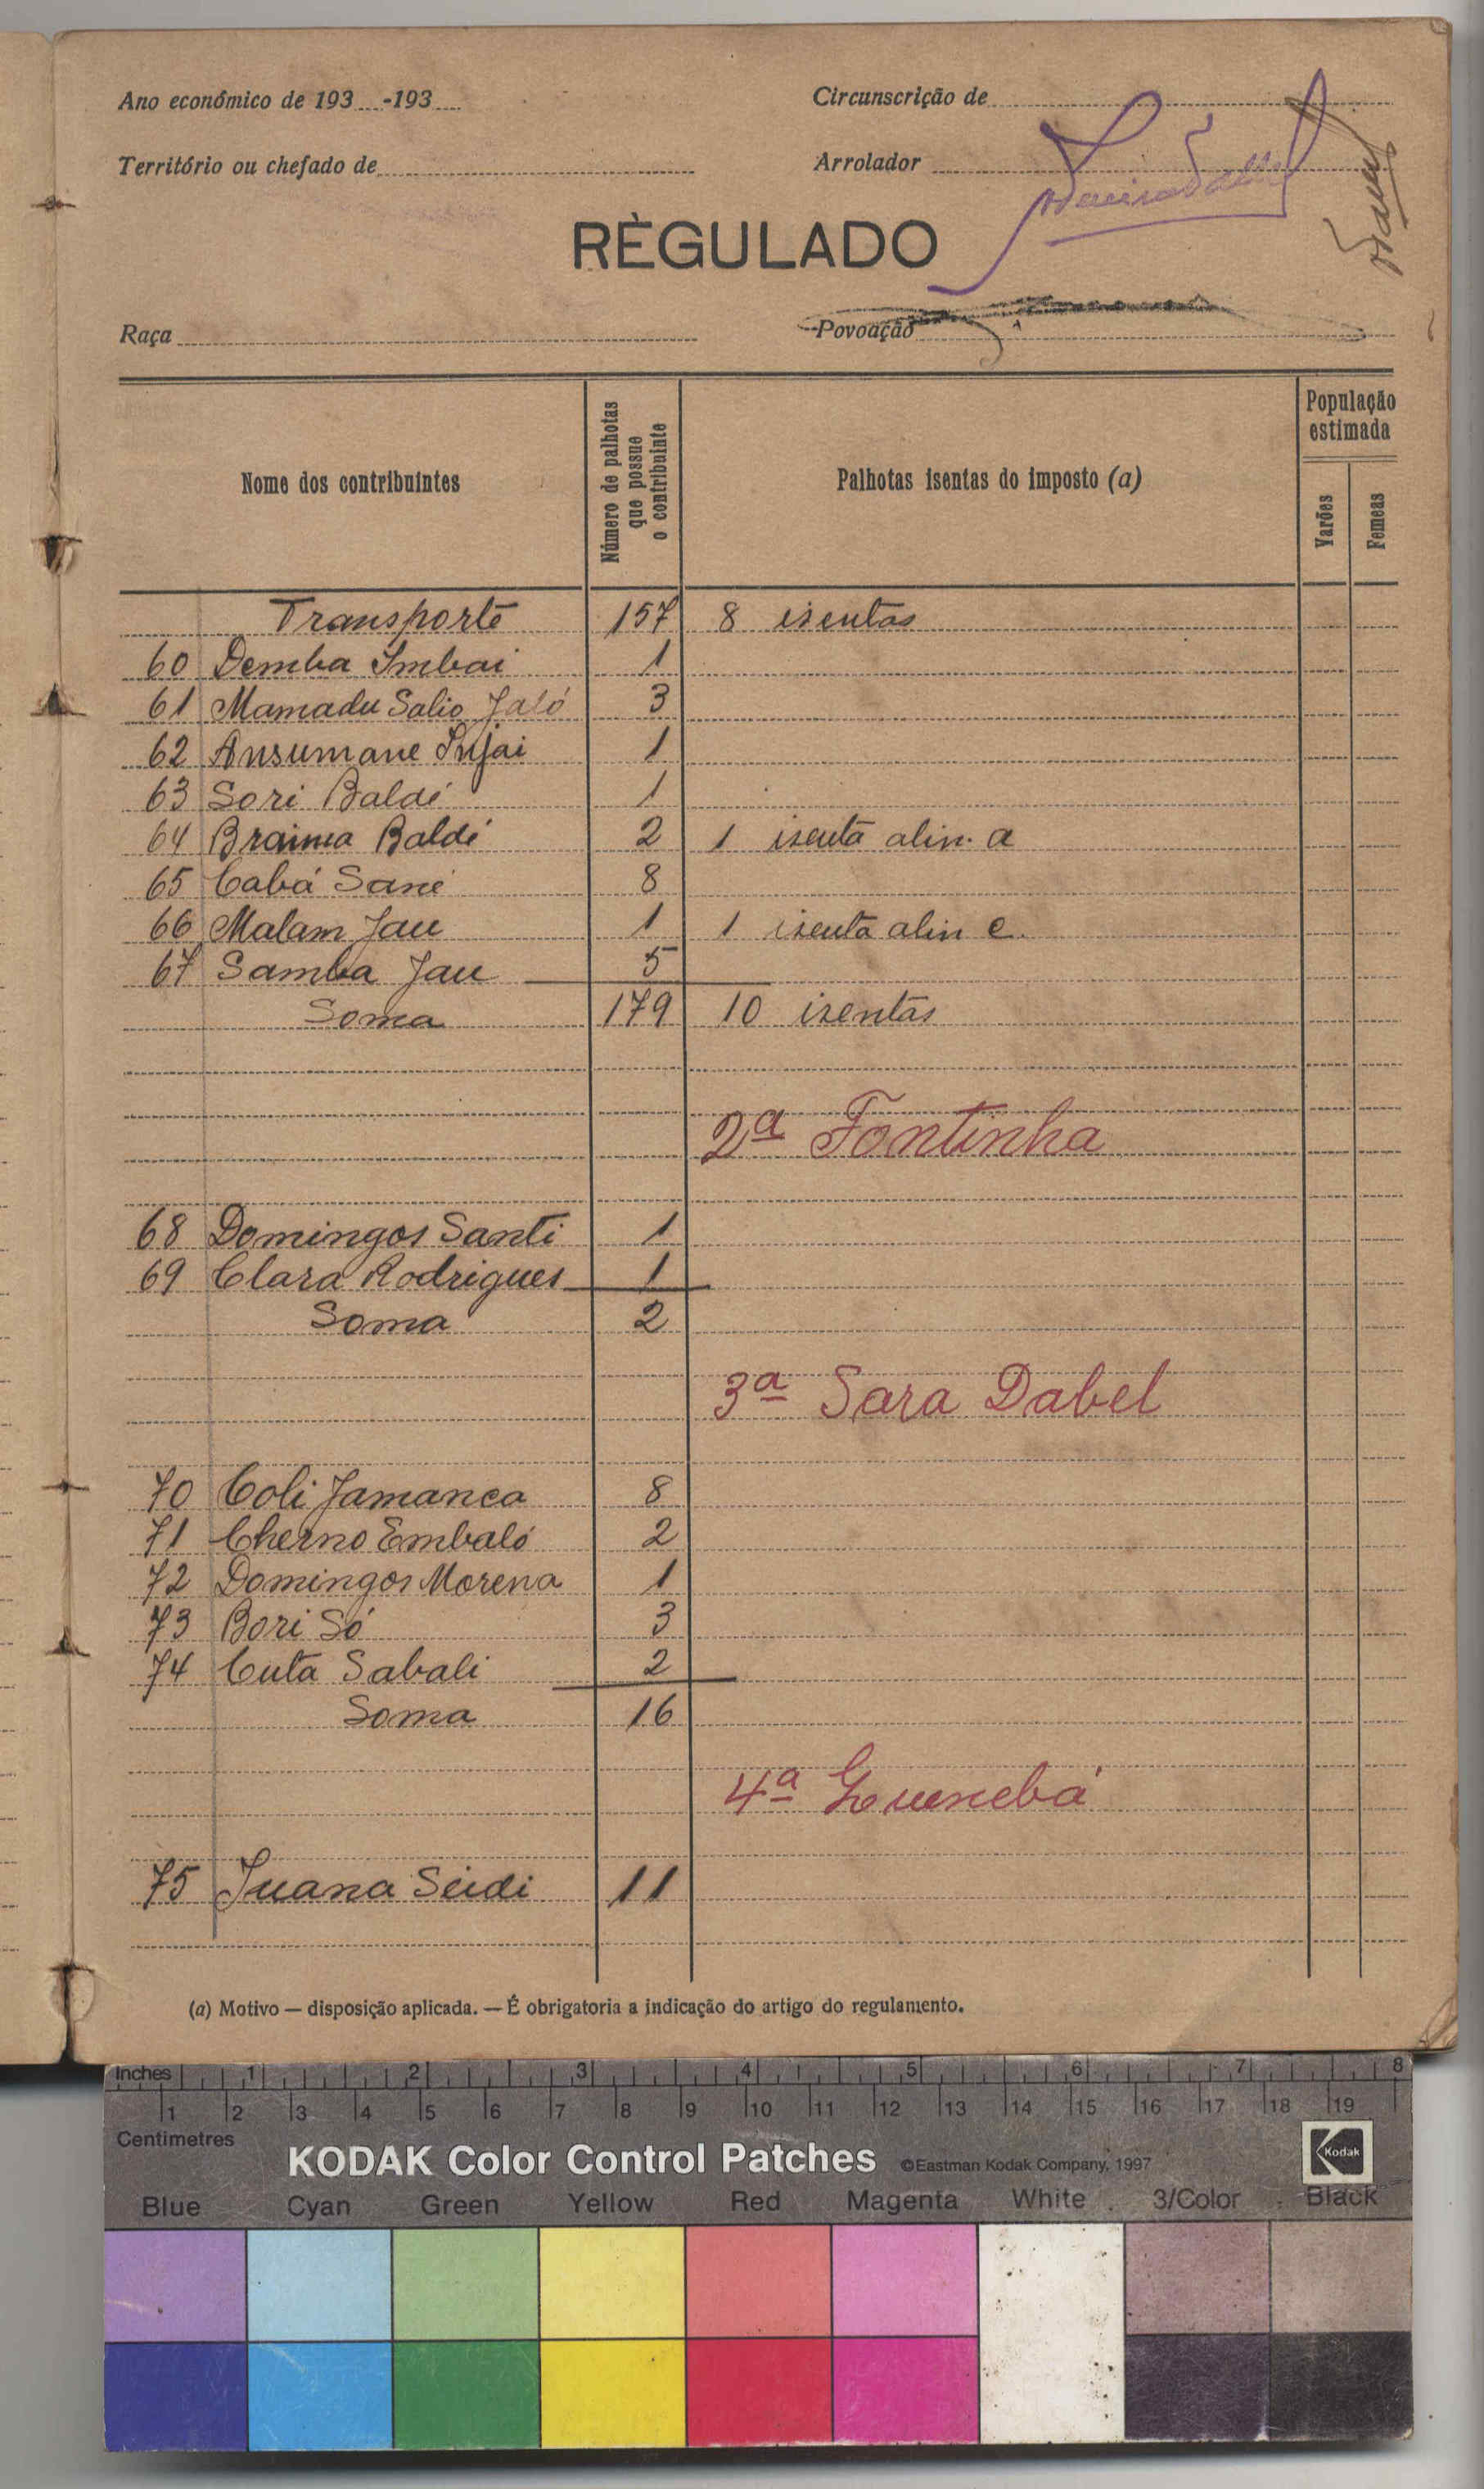 Ano económico de 193 -193
Circunscrição de
Território ou chefado de
Arrolador
RÈGULADO
Raça
Povoação
Nome dos contribuintes
Número de palhotas que possue o contribuinte
Palhotas isentas do imposto (a)
População estimada
Varões
Femeas
Transporte 157 8 isentas
60 Demba Imbai 1
61 Mamadu Salio Jaló 3
62 Ansumane Injai 1
63 Sori Baldé 1
64 Braima Baldé 2 1 isenta alin. a
65 Cabá Sané 8
66 Malam Jau 1 1 isenta alin e.
67 Samba Jau 5
Soma 179 10 isentas
2ª Fontinha
68 Domingos Santi 1
69 Clara Rodrigues 1
Soma 2
3ª Sara Dabel
70 Coli Jamanca 8
71 Cherno Embaló 2
72 Domingos Morena 1
73 Bori Só 3
74 Cuta Sabali 2
Soma 16
4ª
75 Juana Seidi 11
(a) Motivo — disposição aplicada. — É obrigatoria a indicação do artigo do regulamento.
Inches 1 2 3 4 5 6 7 8
1 2 3 4 5 6 7 8 9 10 11 12 13 14 15 16 17 18 19
Centimetres
KODAK Color Control Patches ©Eastman Kodak Company, 1997 Kodak
Blue Cyan Green Yellow Red Magenta White 3/Color Black